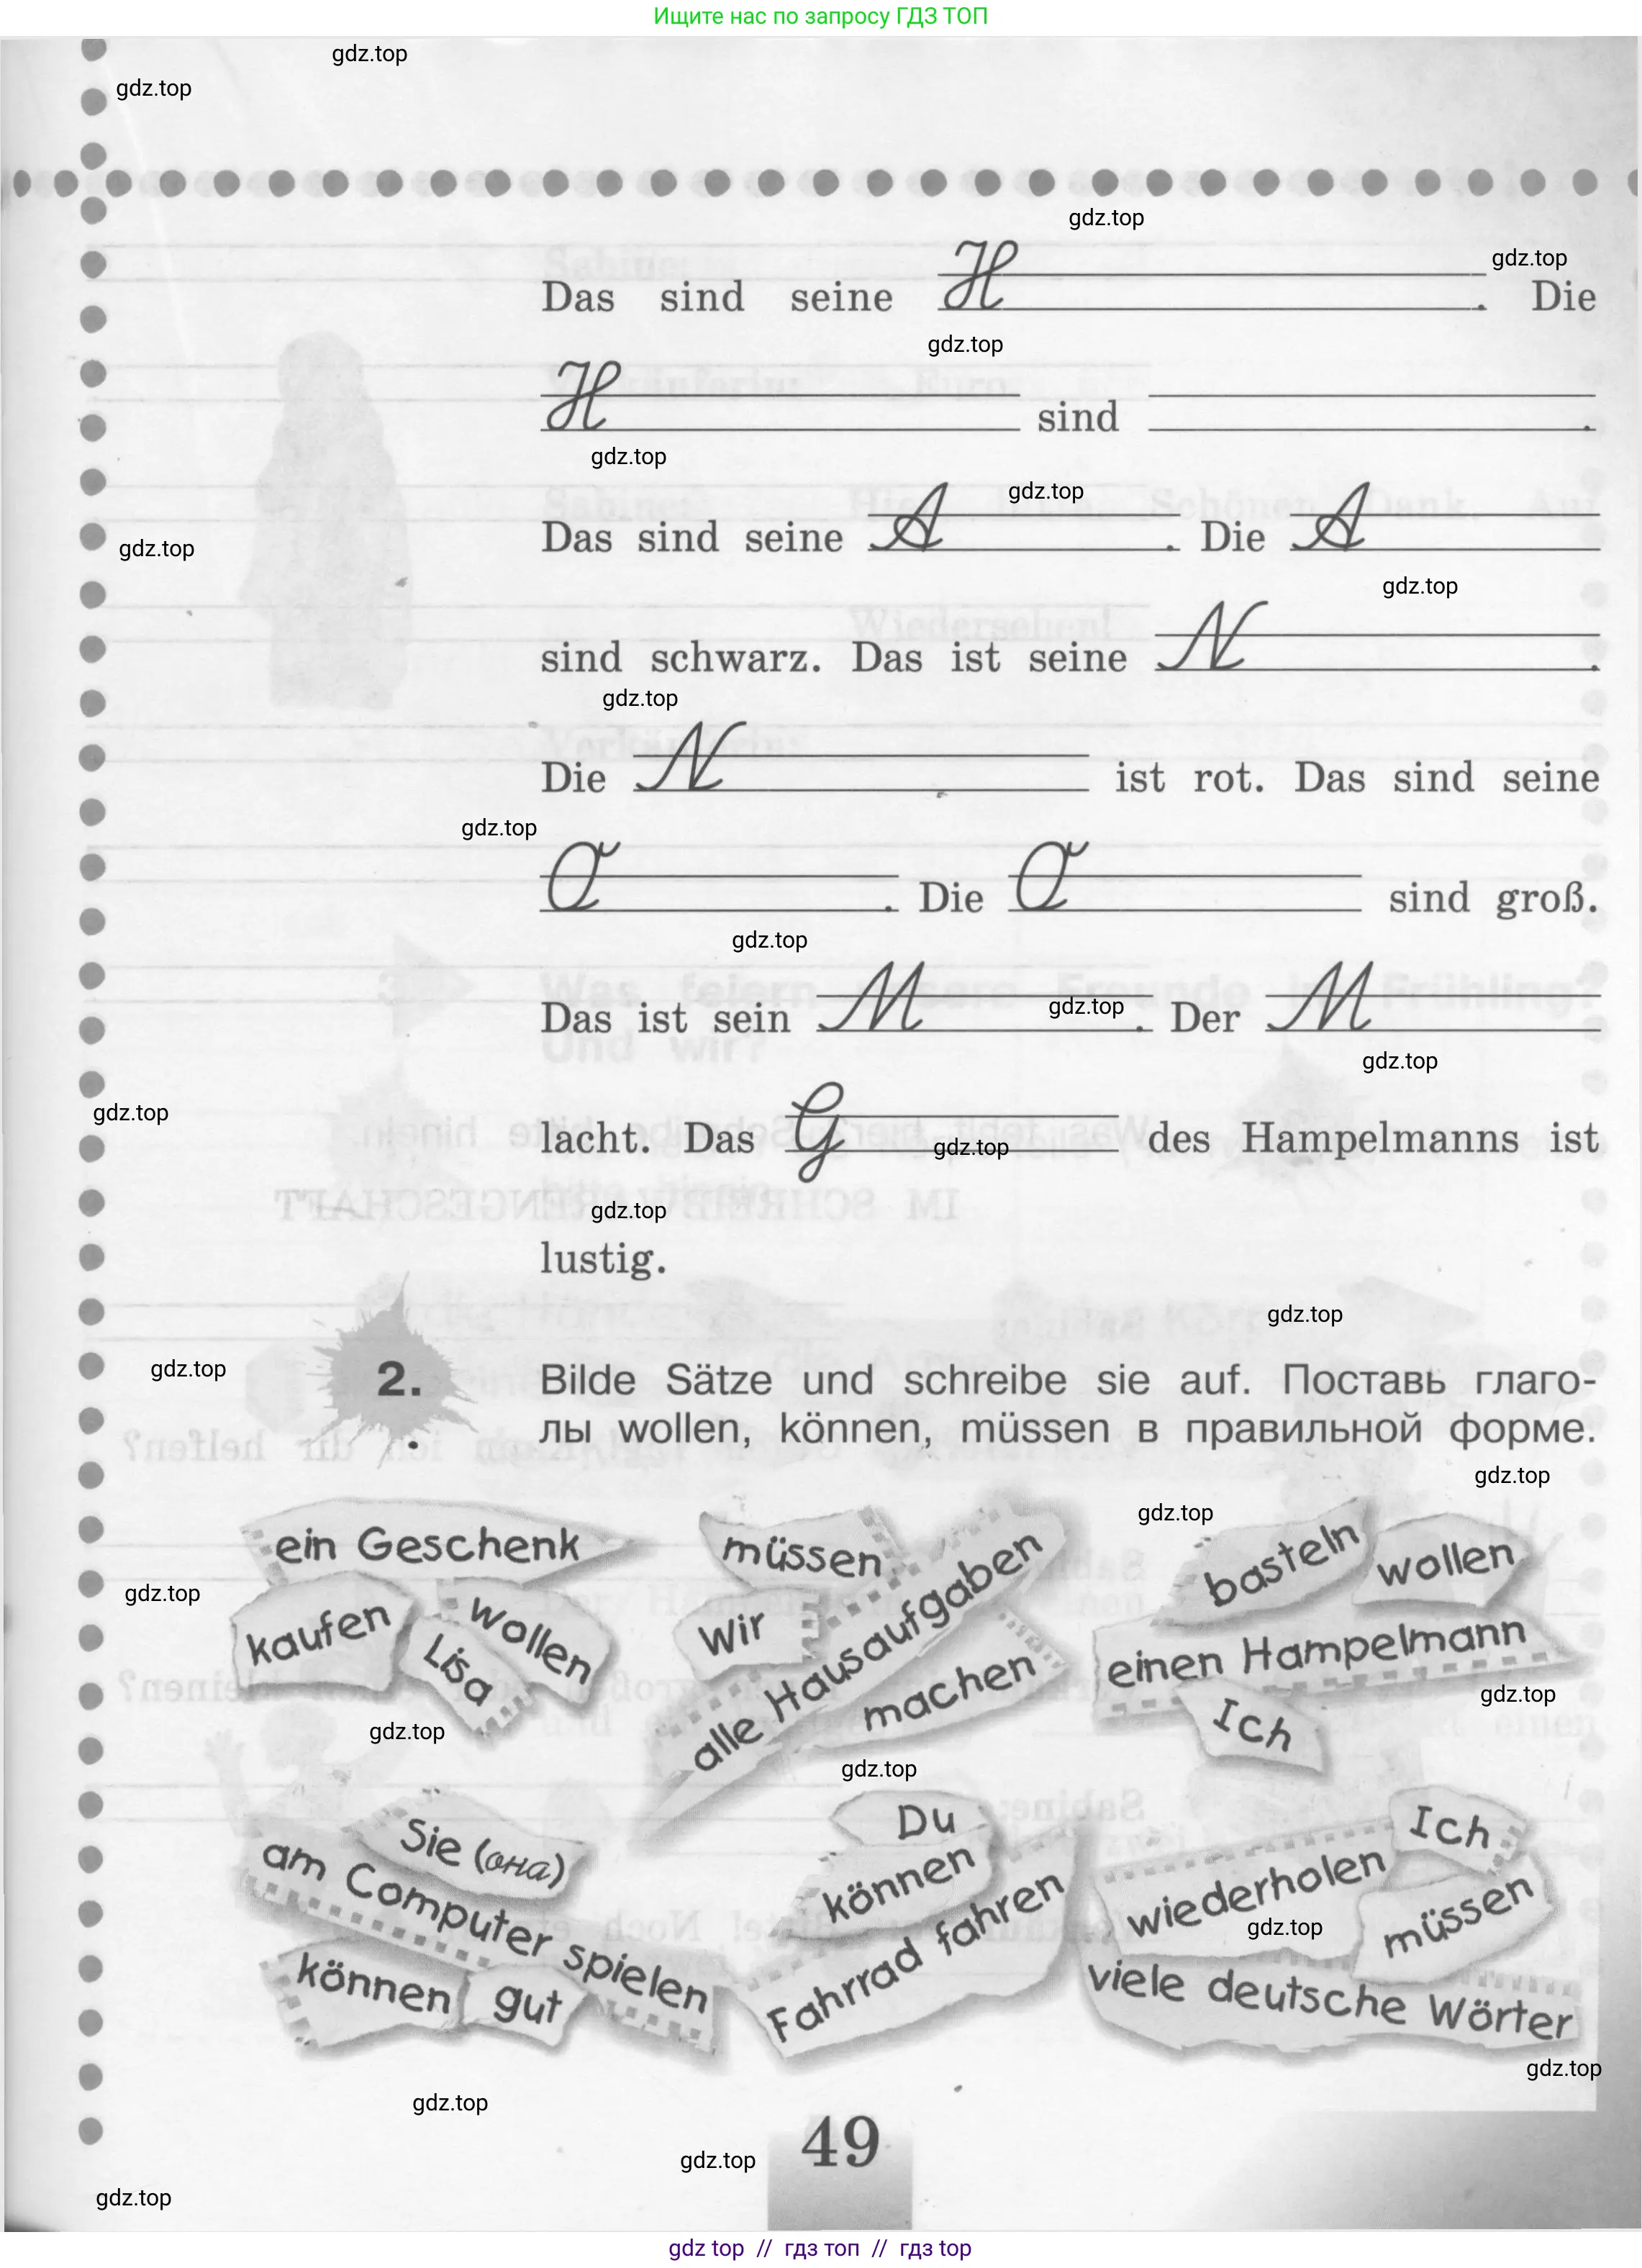 Ищите нас по запросу ГДЗ ТОП
gdz.top
gdz.top
gdz.top
gdz.top
Das sind seine H . Die
gdz.top
H sind .
gdz.top
gdz.top
Das sind seine A . Die A
gdz.top
gdz.top
sind schwarz. Das ist seine N .
gdz.top
Die N ist rot. Das sind seine
gdz.top
O . Die O sind groß.
gdz.top
Das ist sein M . Der M
gdz.top
gdz.top
gdz.top
lacht. Das G des Hampelmanns ist
gdz.top
gdz.top
lustig.
gdz.top
gdz.top
2. Bilde Sätze und schreibe sie auf. Поставь глаго-
лы wollen, können, müssen в правильной форме.
gdz.top
gdz.top
ein Geschenk
kaufen
Lisa
wollen
gdz.top
gdz.top
müssen
Wir
alle Hausaufgaben
machen
gdz.top
basteln
wollen
einen Hampelmann
Ich
gdz.top
Sie (она)
am Computer spielen
können
gut
Du
können
Fahrrad fahren
Ich
wiederholen
müssen
viele deutsche Wörter
gdz.top
gdz.top
gdz.top
49
gdz.top
gdz.top
gdz top // гдз топ // гдз top